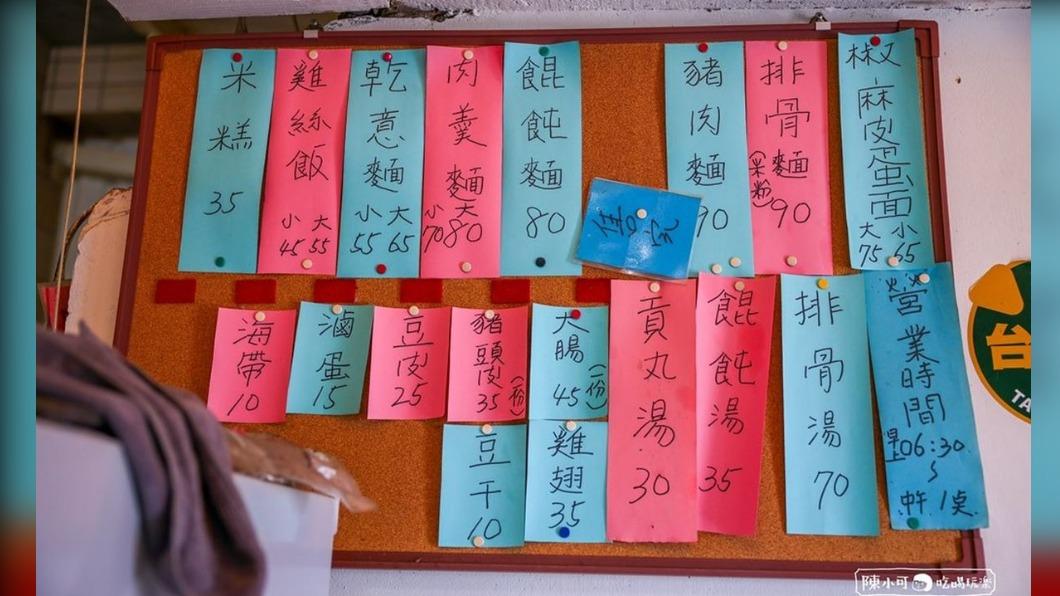 米糕 35
雞絲飯 小45 大55
乾意麵 小55 大65
肉羹麵 小70 大80
餛飩麵 80
豬肉麵 90
排骨麵 (米粉) 90
椒麻皮蛋面 大75 小65
海帶 10
滷蛋 15
豆皮 25
豬頭皮 35 (一份)
大腸 45 (一份)
豆干 10
雞翅 35
貢丸湯 30
餛飩湯 35
排骨湯 70
營業時間
06:30
~
中午 1点
台
TA
陳小可 吃喝玩樂